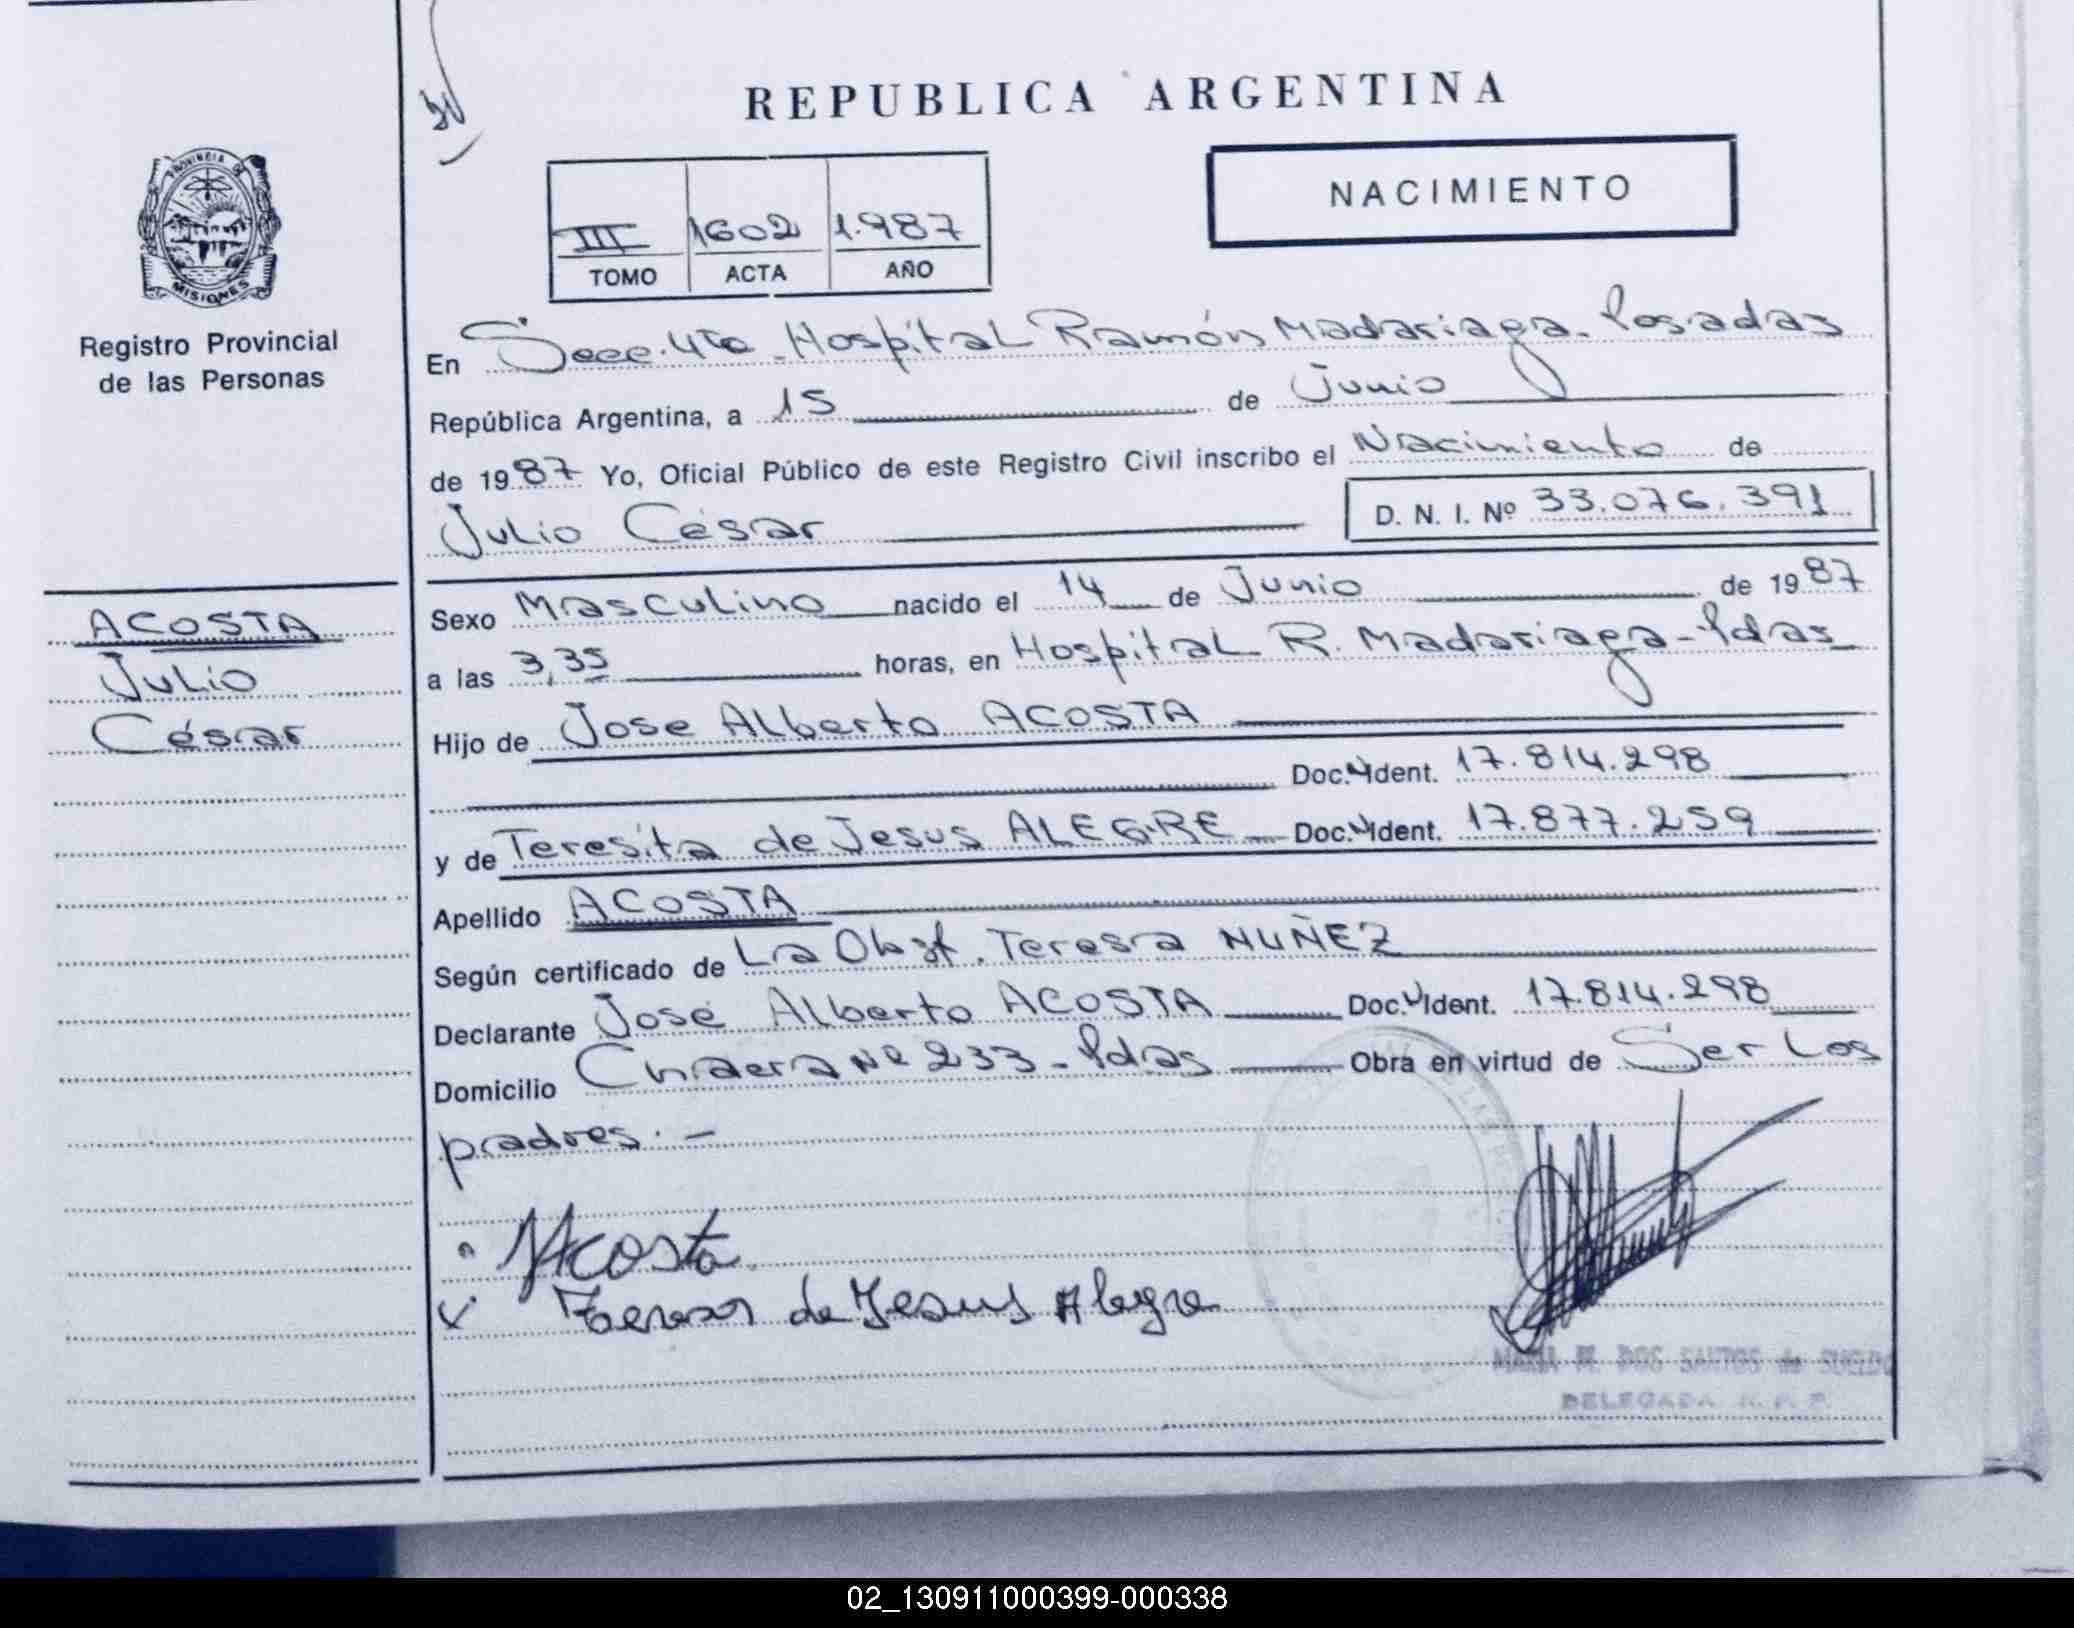 REPUBLICA ARGENTINA
NACIMIENTO
III 1602 1.987
TOMO ACTA AÑO
PROVINCIA DE
MISIONES
Registro Provincial
de las Personas
ACOSTA
Julio
César
En Secc. 4ta - Hospital Ramón Madariaga - Posadas
República Argentina, a 15 de Junio
de 1987 Yo, Oficial Público de este Registro Civil inscribo el Nacimiento de
Julio César D. N. I. Nº 33.076.391
Sexo Masculino nacido el 14 de Junio de 1987
a las 3,35 horas, en Hospital R. Madariaga - Pdas
Hijo de Jose Alberto ACOSTA
Doc. Ident. 17.814.298
y de Teresita de Jesus ALEGRE Doc. Ident. 17.877.259
Apellido ACOSTA
Según certificado de La Obst. Teresa NUÑEZ
Declarante José Alberto ACOSTA Doc. Ident. 17.814.298
Domicilio Nº 233 - Pdas Obra en virtud de Ser los
padres. -
Acosta
de Jesus Alegre
MARIA DOS SANTOS de SUELDO
DELEGADA R. P. P.
02_130911000399-000338